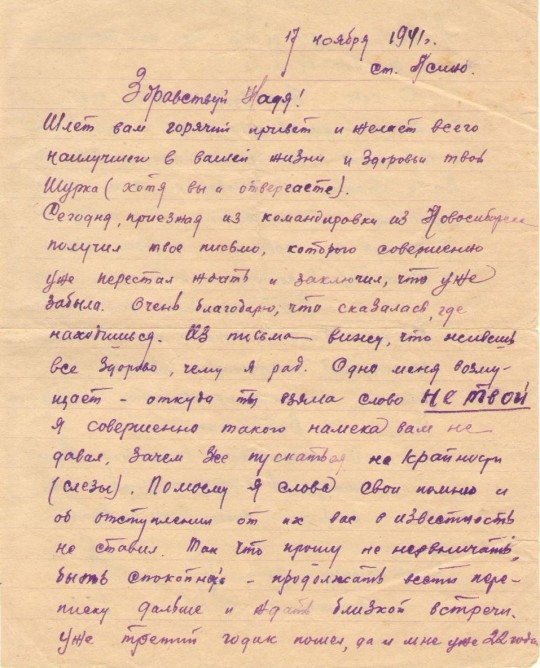 17 ноября 1941г.
ст. Асино.
Здравствуй Надя!
Шлет вам горячий привет и желает всего
наилучшего в вашей жизни и здоровьи твой
Шурка (хотя вы и отвергаете).
Сегодня, приезжая из командировки из Новосибирска
получил твое письмо, которого совершенно
уже перестал ждать и заключил, что уже
забыла. Очень благодарю, что сказалась, где
находишься. Из письма вижу, что живешь
все здорово, чему я рад. Одно меня возму-
щает – откуда ты взяла слово не твой
Я совершенно такого намека вам не
давал, зачем же пускаться на крайности
(слезы). Помоему я слова свои помню и
об отступлении от их вас в известность
не ставил. Так что прошу не
быть спокойной – продолжать вести пере-
писку дальше и ждать близкой встречи.
Уже третий годик пошел, да и мне уже 22 года